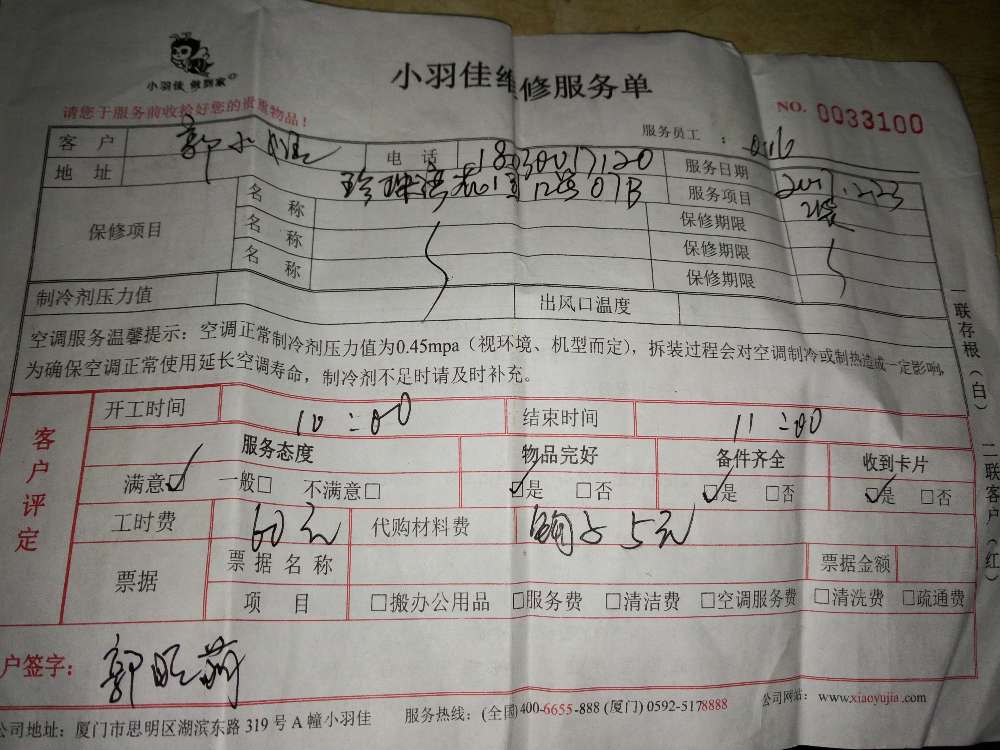 小羽佳 做到家
小羽佳维修服务单
请您于服务前收拾好您的贵重物品！
NO. 0033100
服务员工：
客户 郭小姐 电话 服务日期 2017.2.23
地址 珍珠湾花园12号07B 服务项目
保修项目 名称 保修期限
名称 保修期限
名称 保修期限
制冷剂压力值 出风口温度
空调服务温馨提示：空调正常制冷剂压力值为0.45mpa（视环境、机型而定），拆装过程会对空调制冷或制热造成一定影响，
为确保空调正常使用延长空调寿命，制冷剂不足时请及时补充。
一联存根（白） 二联客户（红）
客户评定
开工时间 10:00 结束时间 11:00
服务态度 物品完好 备件齐全 收到卡片
满意☑ 一般□ 不满意□ ☑是 □否 ☑是 □否 ☑是 □否
工时费 60元 代购材料费 5元
票据 票据名称 票据金额
项目 □搬办公用品 □服务费 □清洁费 □空调服务费 □清洗费 □疏通费
户签字：
公司地址：厦门市思明区湖滨东路 319 号 A 幢小羽佳 服务热线：(全国)400-6655-888 (厦门) 0592-5178888 公司网站：www.xiaoyujia.com